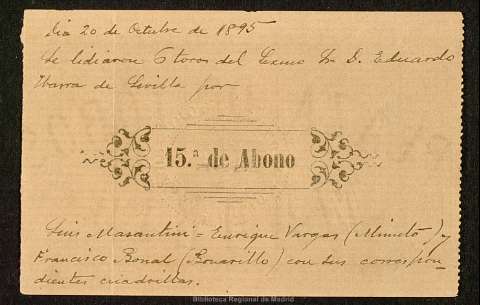 Dia 20 de Octubre de 1895
Se lidiaron 6 toros del Exmo Sr D. Eduardo
Ibarra de Sevilla por
15.ª de Abono
Luis Mazantini = Enrique Vargas (Minuto) y
Francisco Bonal (Bonarillo) con sus correspon
dientes cuadrillas.
Biblioteca Regional de Madrid